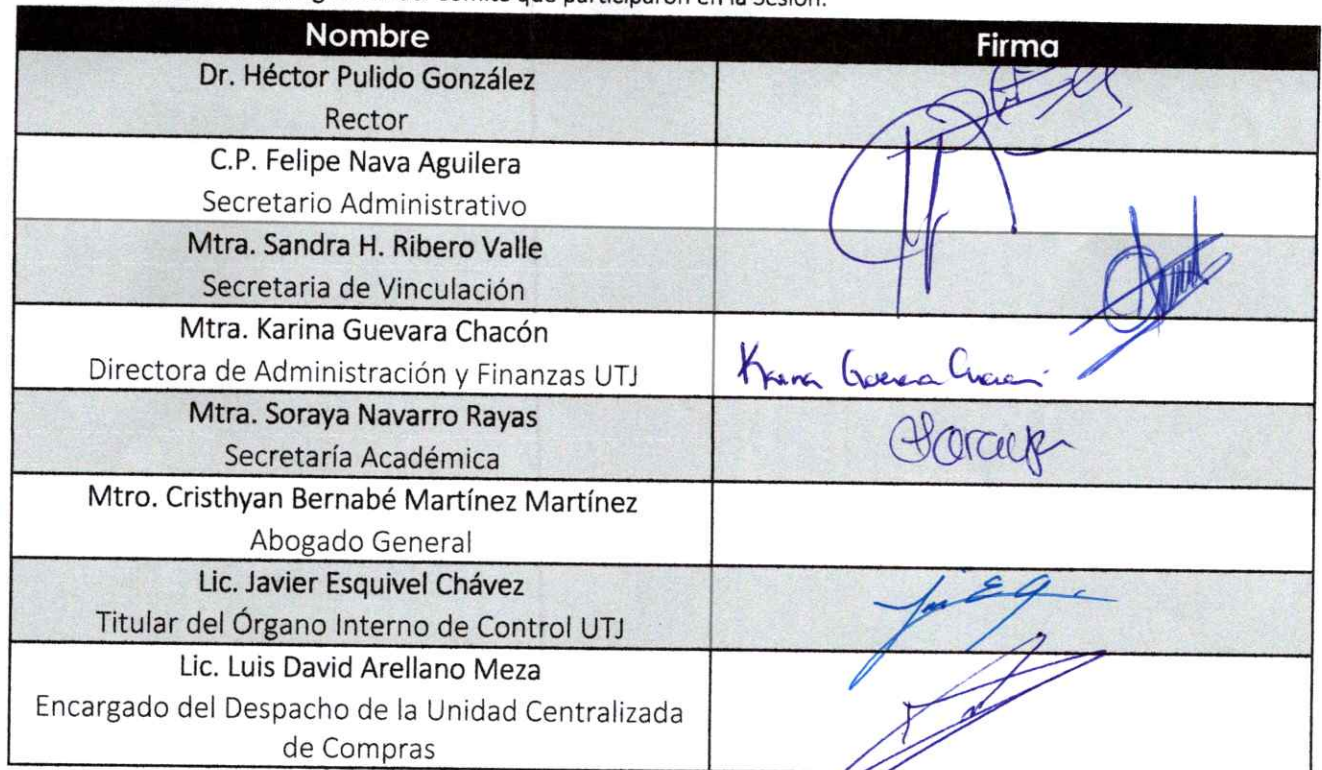 Comité que participaron en la Sesión.
Nombre
Firma
Dr. Héctor Pulido González
Rector
C.P. Felipe Nava Aguilera
Secretario Administrativo
Mtra. Sandra H. Ribero Valle
Secretaria de Vinculación
Mtra. Karina Guevara Chacón
Directora de Administración y Finanzas UTJ
Karina Guevara Chacón
Mtra. Soraya Navarro Rayas
Secretaría Académica
Soraya
Mtro. Cristhyan Bernabé Martínez Martínez
Abogado General
Lic. Javier Esquivel Chávez
Titular del Órgano Interno de Control UTJ
Lic. Luis David Arellano Meza
Encargado del Despacho de la Unidad Centralizada
de Compras